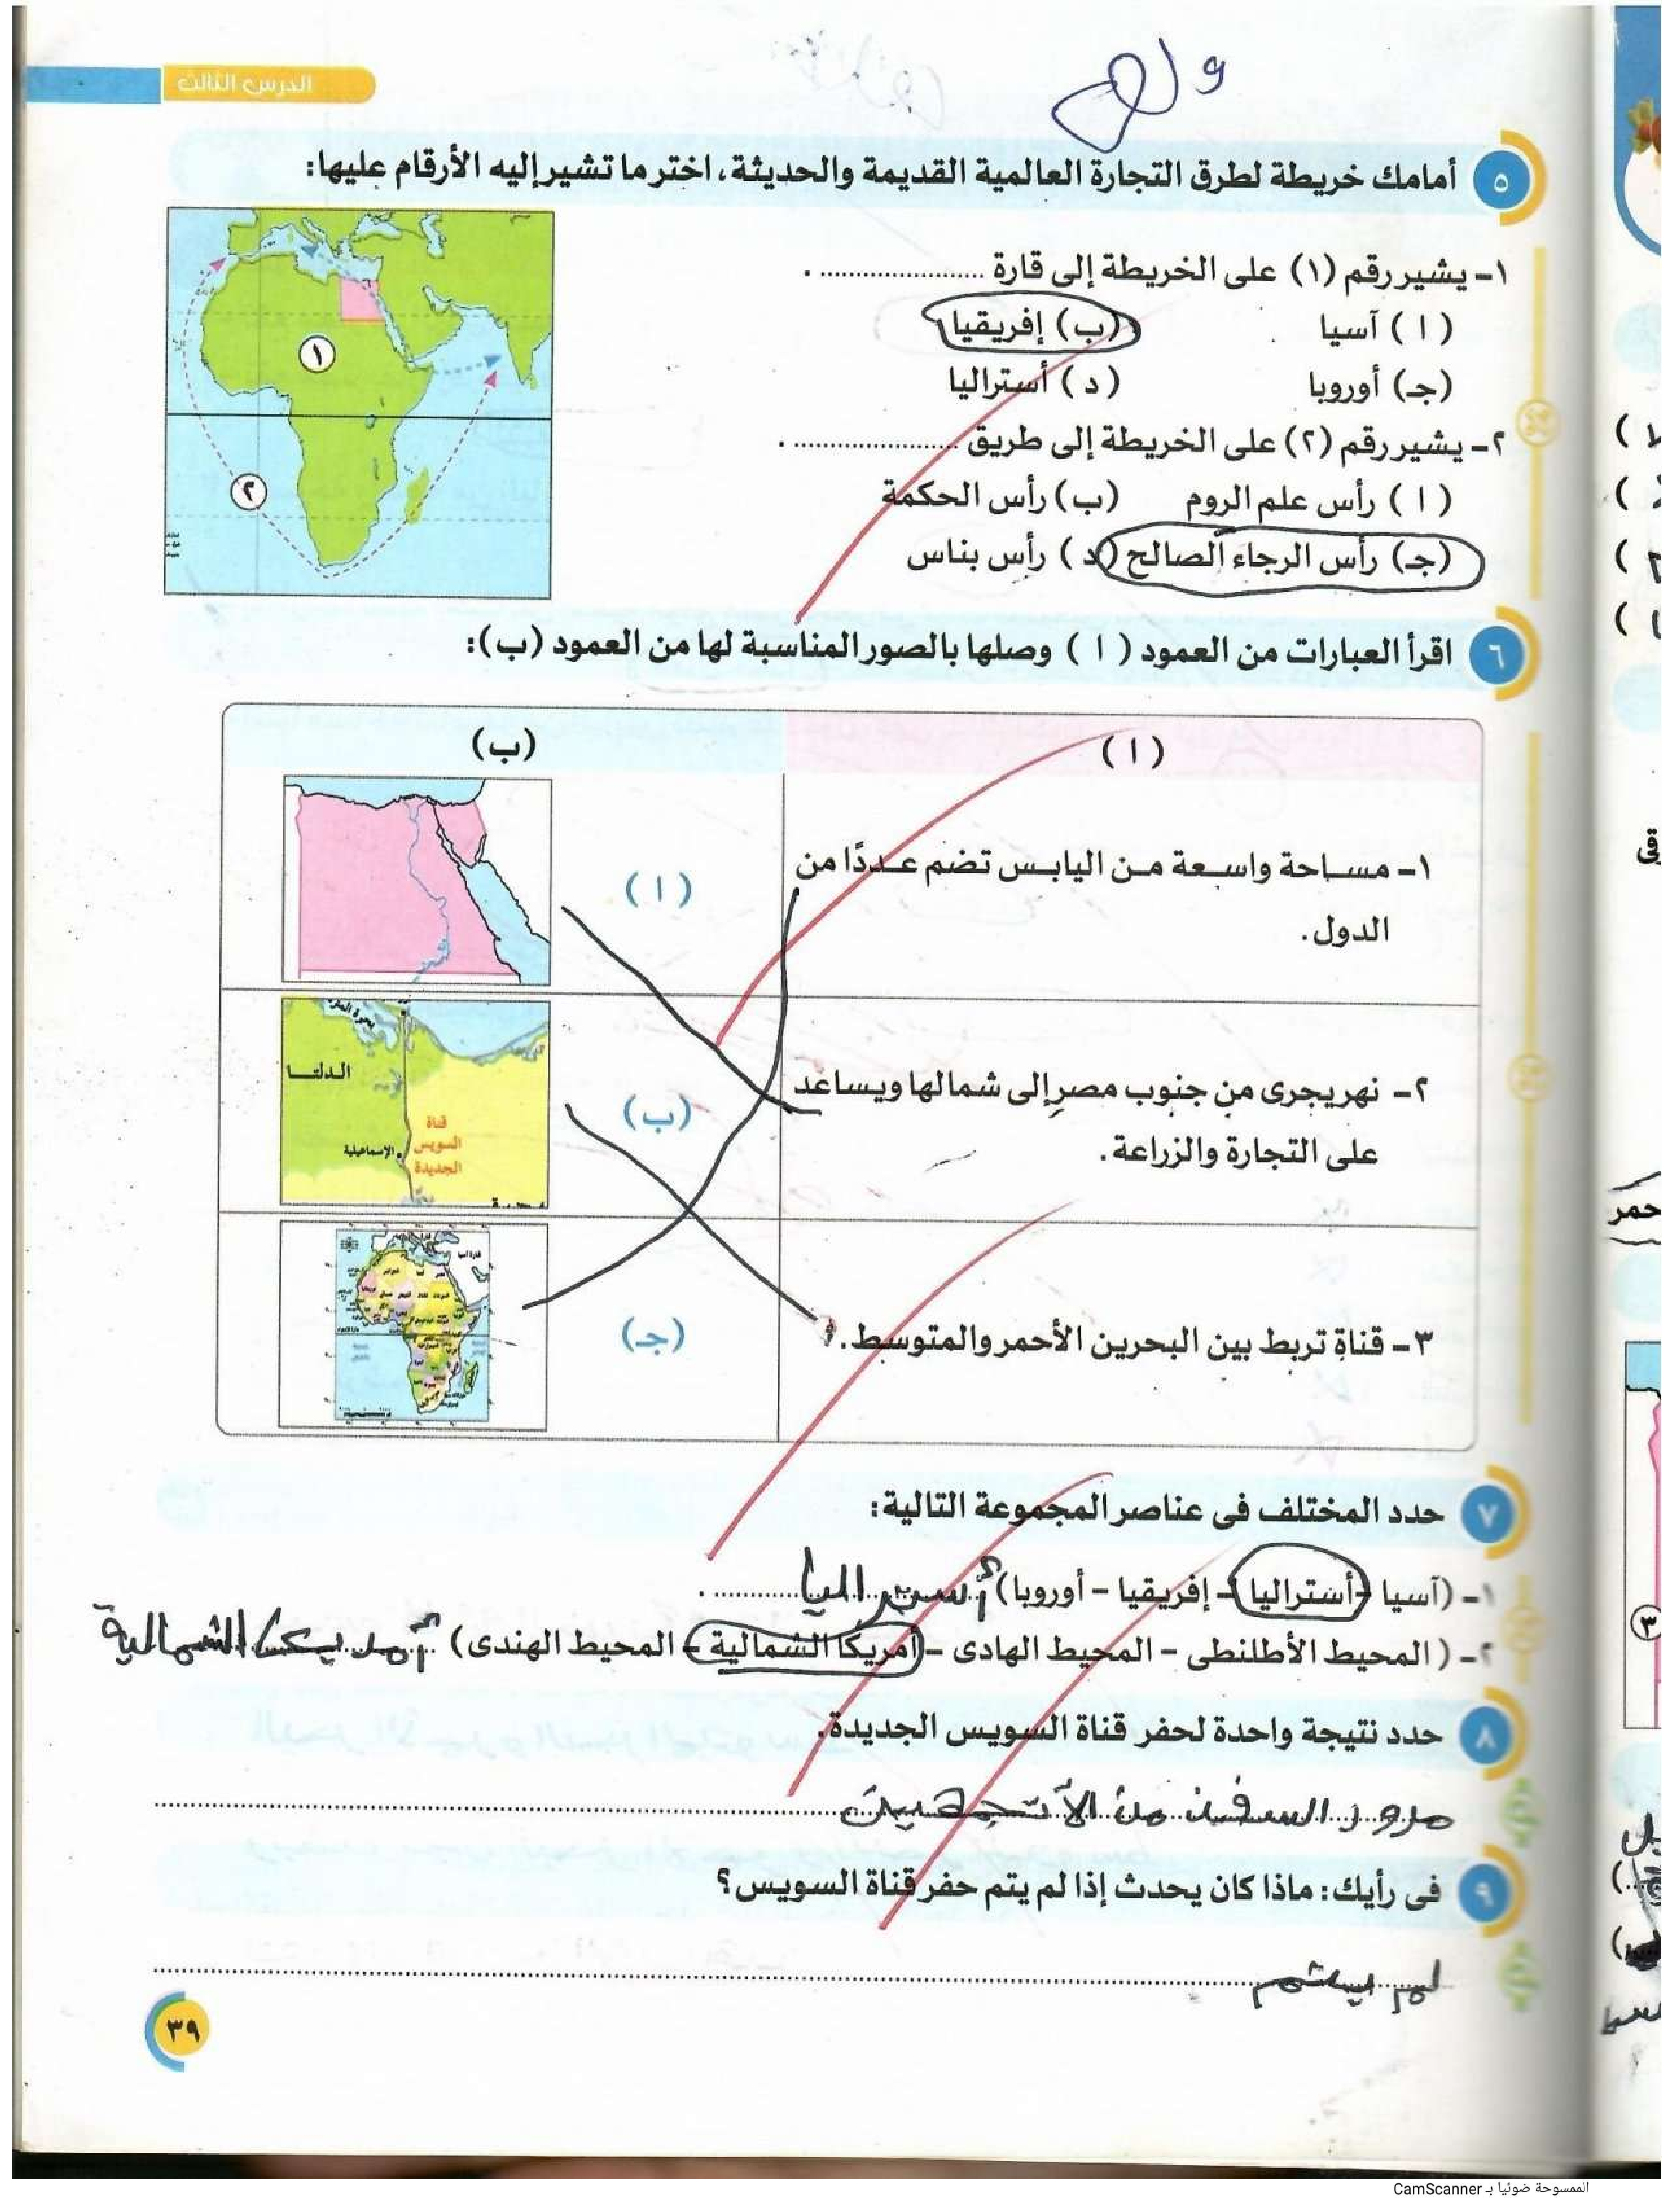 الدرس الثالث
٥ أمامك خريطة لطرق التجارة العالمية القديمة والحديثة، اختر ما تشير إليه الأرقام عليها:
١- يشير رقم (١) على الخريطة إلى قارة ...................... .
( ا ) آسيا (ب) إفريقيا
(جـ) أوروبا (د) أستراليا
٢- يشير رقم (٢) على الخريطة إلى طريق ...................... .
( ا ) رأس علم الروم (ب) رأس الحكمة
(جـ) رأس الرجاء الصالح (د) رأس بناس
١
٢
٦ اقرأ العبارات من العمود ( ا ) وصلها بالصور المناسبة لها من العمود (ب):
( ا ) (ب)
١- مساحة واسعة من اليابس تضم عددًا من
الدول.
( ا )
٢- نهر يجرى من جنوب مصر إلى شمالها ويساعد
على التجارة والزراعة.
(ب)
الدلتا
قناة
السويس
الجديدة
الإسماعيلية
٣- قناة تربط بين البحرين الأحمر والمتوسط.
(جـ)
٧ حدد المختلف فى عناصر المجموعة التالية:
١- (آسيا - أستراليا - إفريقيا - أوروبا) أستراليا .
٢- ( المحيط الأطلنطى - المحيط الهادى - أمريكا الشمالية - المحيط الهندى) أمريكا الشمالية
٨ حدد نتيجة واحدة لحفر قناة السويس الجديدة.
مرور السفن من الأتجهين
٩ فى رأيك: ماذا كان يحدث إذا لم يتم حفر قناة السويس؟
لم يتم
٣٩
حمر
٣
الممسوحة ضوئيا بـ CamScanner